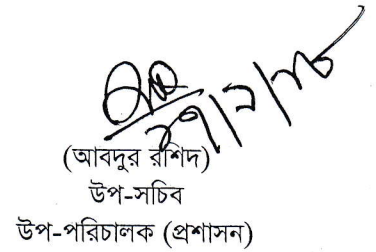 (আবদুর রশিদ)
উপ-সচিব
উপ-পরিচালক (প্রশাসন)